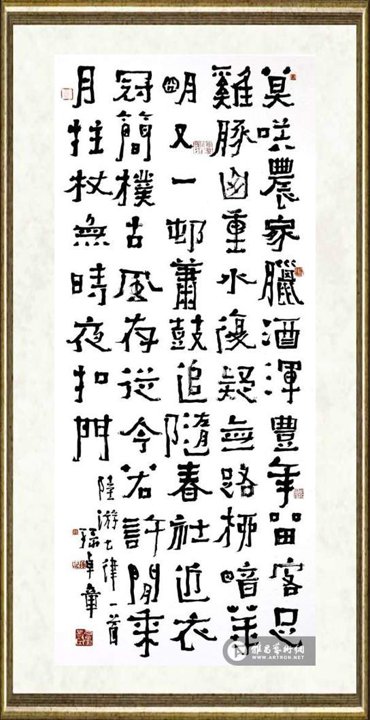 莫咲農家臘酒渾豐年留客足
雞豚山重水復疑無路柳暗花
明又一邨蕭鼓追隨春社近衣
冠簡樸古風存從今若許閒乘
月拄杖無時夜扣門
陸游七律一首
孫卓章
雅昌藝術網
WWW.ARTRON.NET